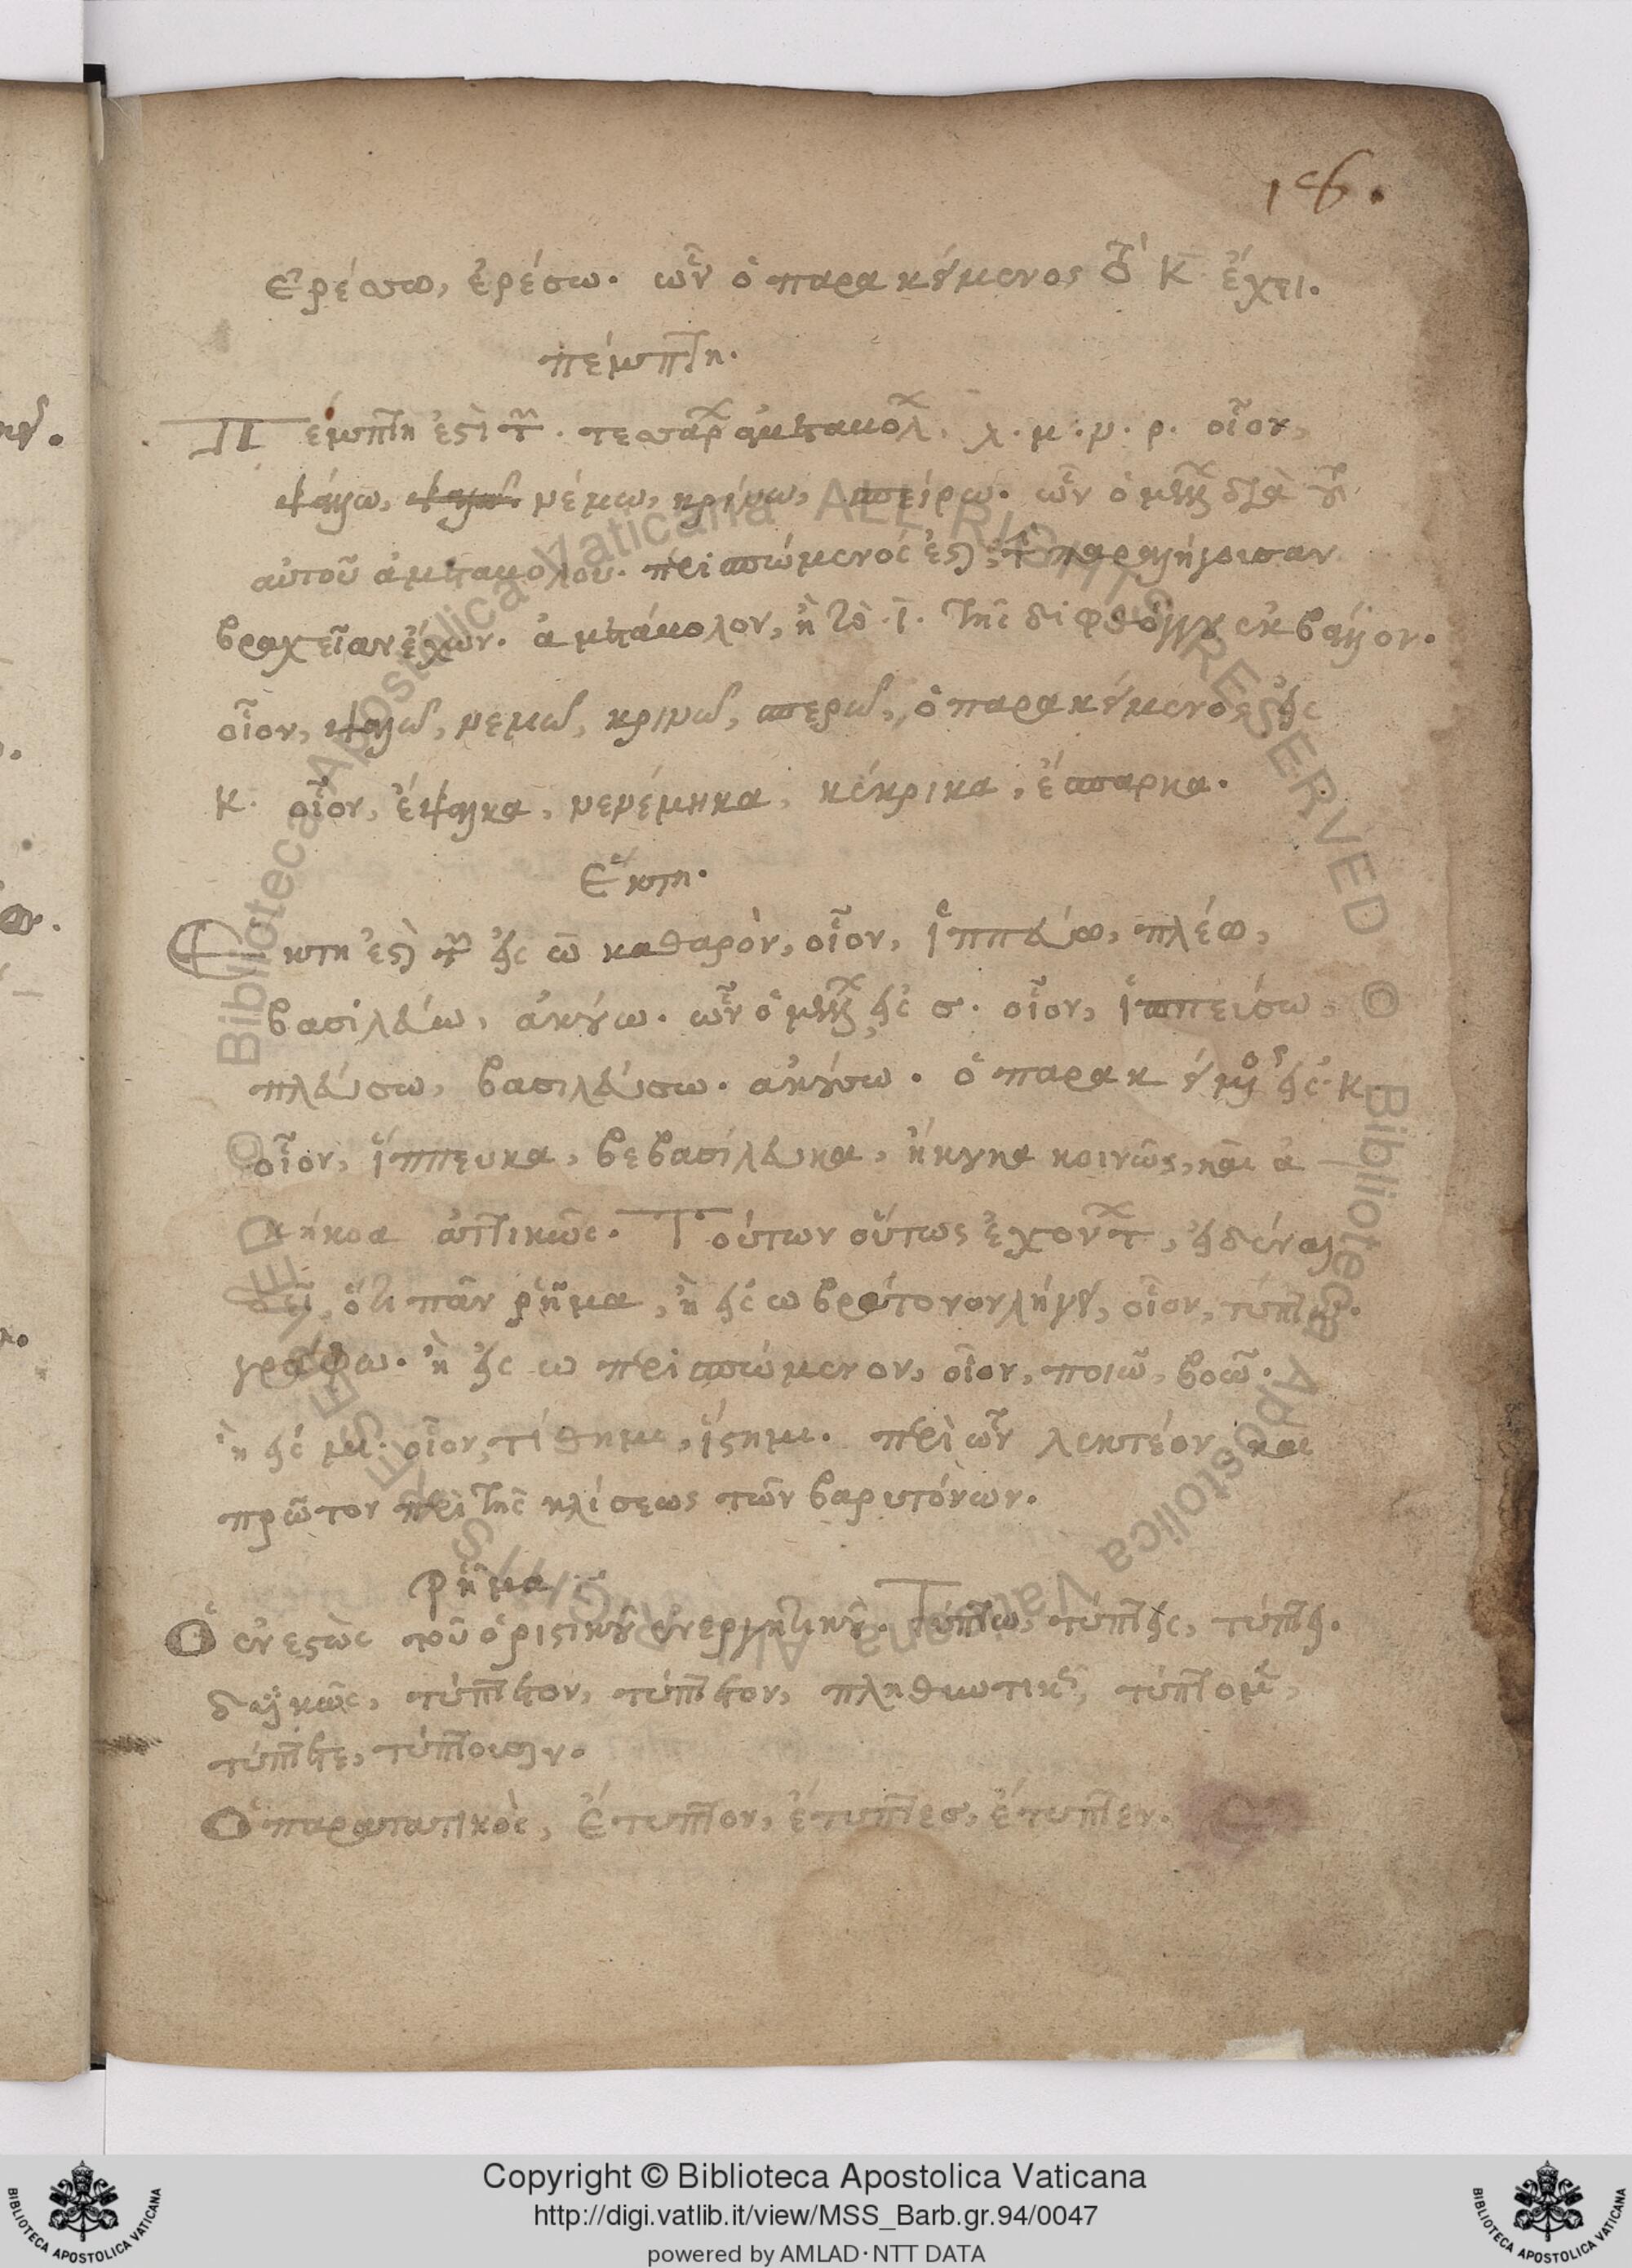 186.
ἐρέσσω, ἐρέσω. ὧν ὁ παρακείμενος τὸ κ ἔχει.
πέμπτη.
Πέμπτη ἐστὶ τῶν τεσσάρων ἀμεταβόλων. λ. μ. ν. ρ. οἷον,
ψάλλω, νέμω, κρίνω, σπείρω. ὧν ὁ μέλλων διὰ τοῦ
αὐτοῦ ἀμεταβόλου. περισπώμενός ἐστι, τὴν παραλήγουσαν
βραχεῖαν ἔχων. ἀμετάβολον, ἢ τὸ ι. τῆς διφθόγγου ἐκβάλλον.
οἷον, ψαλῶ, νεμῶ, κρινῶ, σπερῶ, ὁ παρακείμενος εἰς
κ. οἷον, ἔψαλκα, νενέμηκα, κέκρικα, ἔσπαρκα.
Ἕκτη.
Ἕκτη ἐστὶ τῶν εἰς ω καθαρὸν, οἷον, ἱππεύω, πλέω,
βασιλεύω, ἀκούω. ὧν ὁ μέλλων εἰς σ. οἷον, ἱππεύσω,
πλεύσω, βασιλεύσω. ἀκούσω. ὁ παρακείμενος εἰς κ.
οἷον, ἵππευκα, βεβασίλευκα, ἤκουκα κοινῶς, καὶ ἀ
κήκοα ἀττικῶς. Τούτων οὕτως ἐχόντων, εἰδέναι
δεῖ, ὅτι πᾶν ῥῆμα, ἢ εἰς ω βαρύτονον λήγει, οἷον, τύπτω.
γράφω. ἢ εἰς ω περισπώμενον, οἷον, ποιῶ, βοῶ.
ἢ εἰς μι. οἷον, τίθημι, ἵστημι. περὶ ὧν λεκτέον καὶ
πρῶτον περὶ τῆς κλίσεως τῶν βαρυτόνων.
ῥῆμα
Ὁ ἐνεστὼς τοῦ ὁριστικοῦ ἐνεργητικοῦ. Τύπτω, τύπτεις, τύπτει.
δυϊκῶς, τύπτετον, τύπτετον, πληθυντικῶς, τύπτομεν,
τύπτετε, τύπτουσιν.
Ὁ παρατατικὸς, Ἔτυπτον, ἔτυπτες, ἔτυπτεν.
Copyright © Biblioteca Apostolica Vaticana
http://digi.vatlib.it/view/MSS_Barb.gr.94/0047
powered by AMLAD·NTT DATA